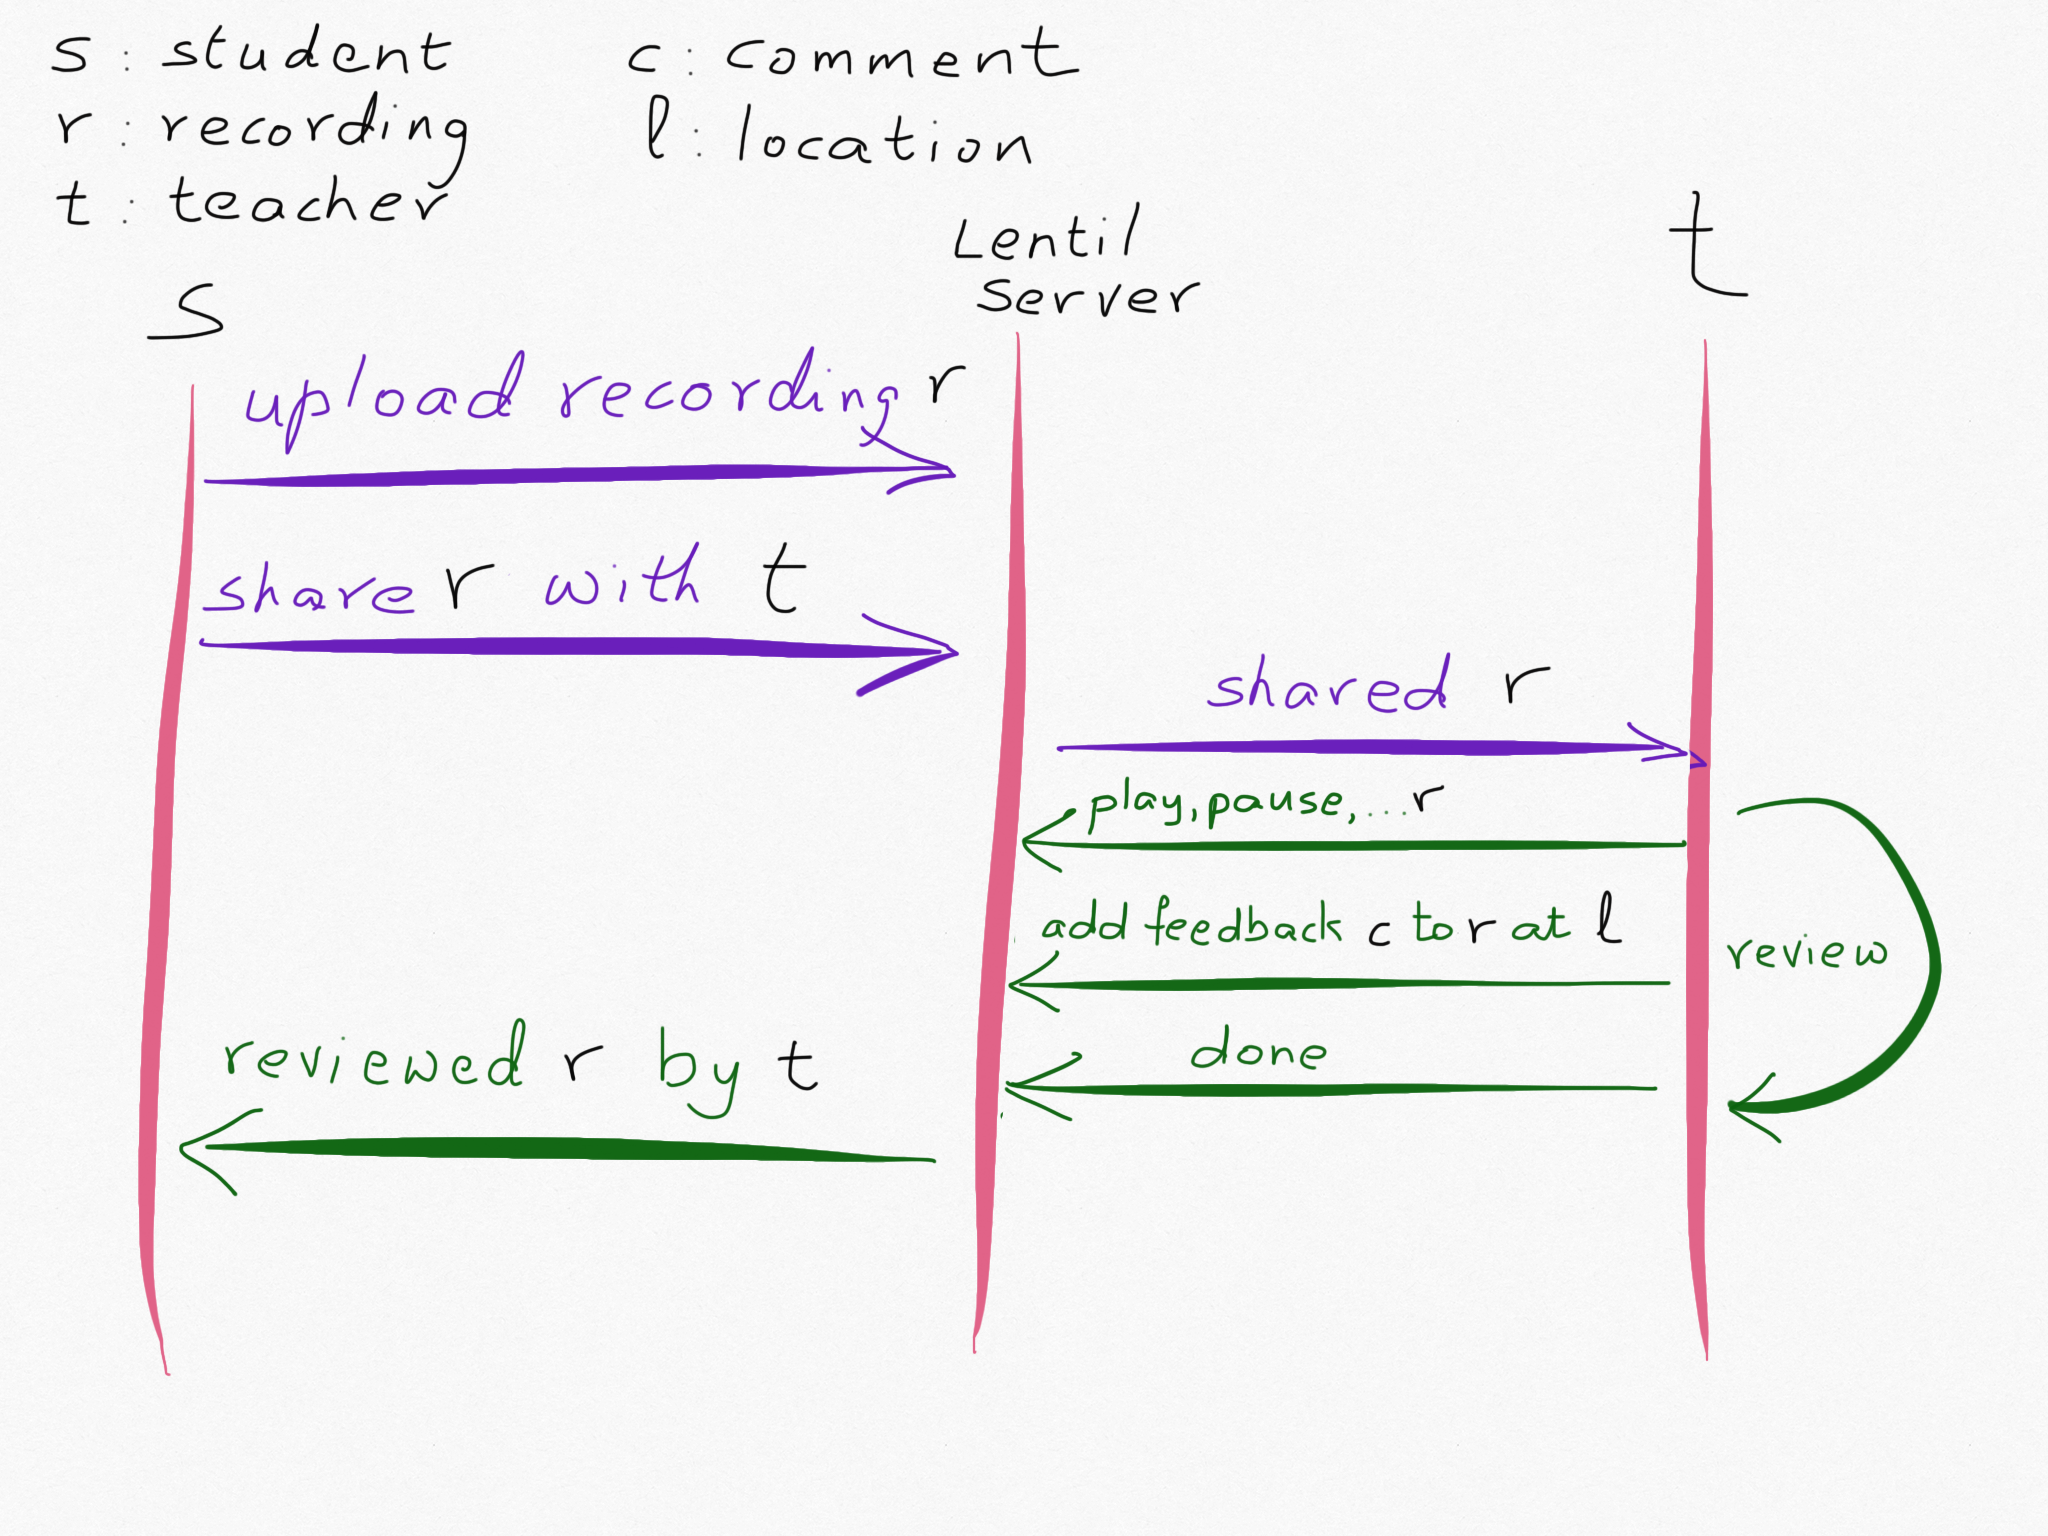 s : student
r : recording
t : teacher
c : comment
l : location
s
Lentil
Server
t
upload recording r
share r with t
shared r
play, pause, ... r
add feedback c to r at l
review
done
reviewed r by t